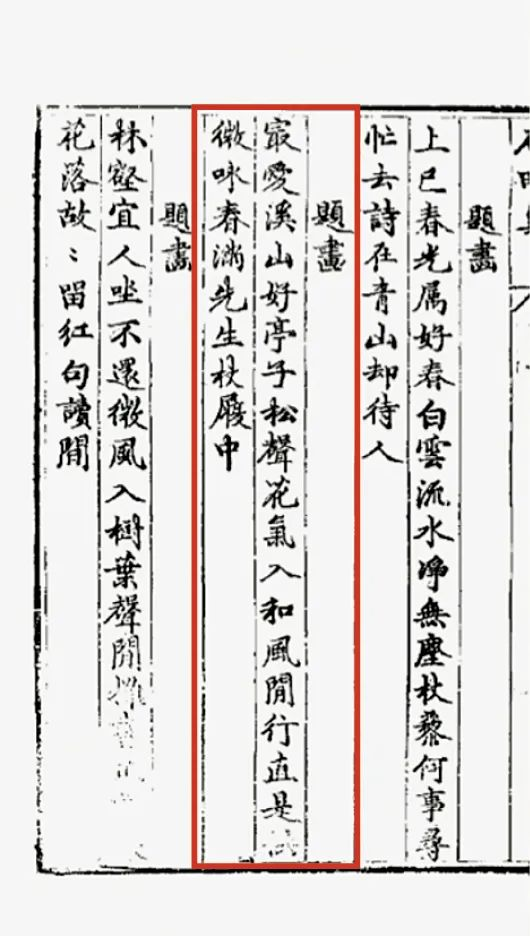 題畫
上巳春光属好春白雲流水淨無塵杖藜何事尋
忙去詩在青山却待人
題畫
最愛溪山好亭子松聲花氣入和風閒行直是
微咏春滿先生杖屨中
題畫
林壑宜人坐不還微風入樹葉聲閒
花落故〻留紅句讀閒